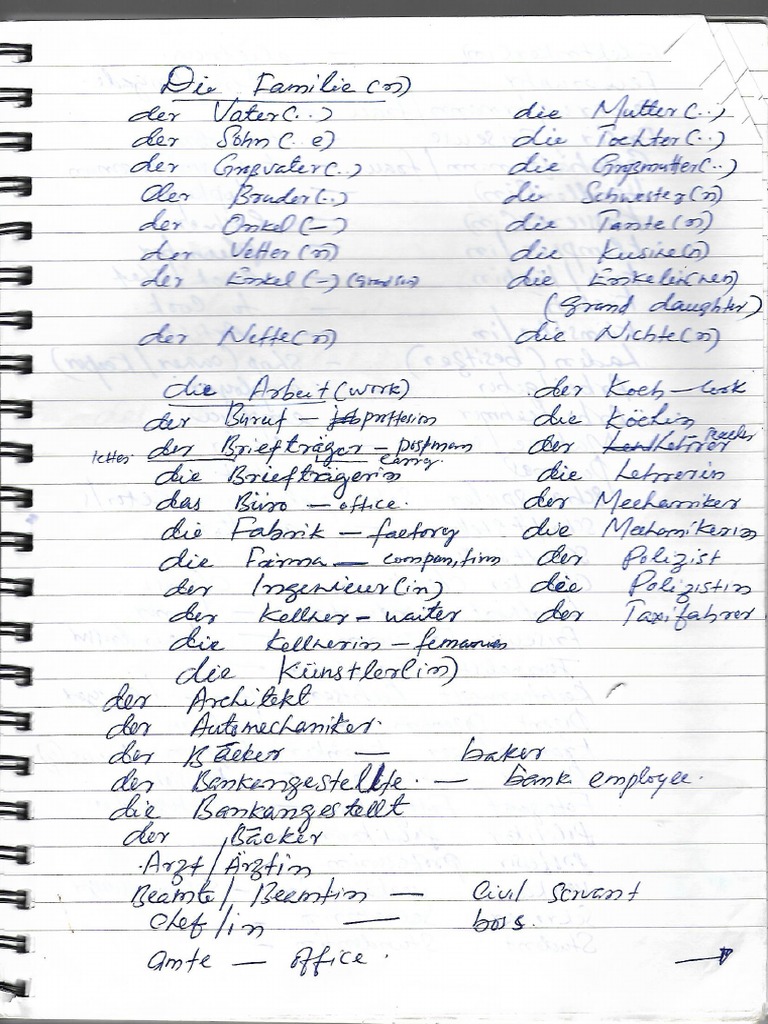 Die Familie(n)
der Vater(..) die Mutter(..)
der Sohn(..e) die Tochter(..)
der Großvater(..) die Großmutter(..)
der Bruder(..) die Schwester(n)
der Onkel(–) die Tante(n)
der Vetter(n) die Kusine(n)
der Enkel(–) (grandson) die Enkelin(nen)
(Grand daughter)
der Neffe(n) die Nichte(n)
die Arbeit (work) der Koch – cook
der Beruf – die Köchin
der Briefträger – postman der Lehrer
letter carry
die Briefträgerin die Lehrerin
das Büro – office. der Mechaniker
die Fabrik – factory die Mechanikerin
die Firma – compan, firm der Polizist
der Ingenieur(in) die Polizistin
der Kellner – waiter der Taxifahrer
die Kellnerin –
die Künstler(in)
der Architekt
der Automechaniker.
der Bäcker — baker
der Bankangestellte. — bank employee.
die Bankangestellt
der Bäcker
Arzt/Ärztin
Beamte/Beamtin — Civil Servant
Chef/in — boss.
amte — office.